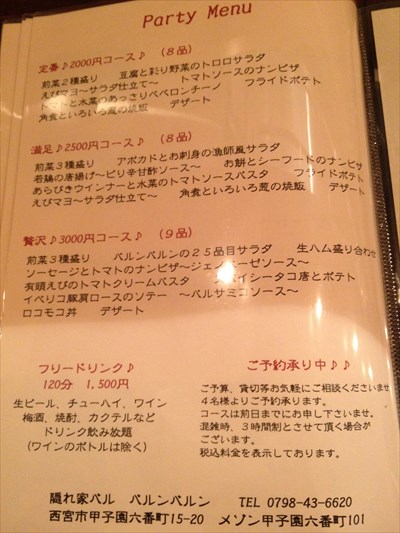 Party Menu
定番♪2000円コース♪ (8品)
前菜2種盛り 豆腐と彩り野菜のトロロサラダ
えびマヨ~サラダ仕立て~ トマトソースのナンピザ
トマトと水菜のあっさりペペロンチーノ フライドポテト
角煮といろいろ葱の焼飯 デザート
満足♪2500円コース♪ (8品)
前菜3種盛り アボカドとお刺身の漁師風サラダ
若鶏の唐揚げ~ピリ辛甘酢ソース~ お餅とシーフードのナンピザ
あらびきウインナーと水菜のトマトソースパスタ フライドポテト
えびマヨ~サラダ仕立て~ 角煮といろいろ葱の焼飯 デザート
贅沢♪3000円コース♪ (9品)
前菜3種盛り バルンバルンの25品目サラダ 生ハム盛り合わせ
ソーセージとトマトのナンピザ~ジェノベーゼソース~
有頭えびのトマトクリームパスタ スパイシータコ唐とポテト
イベリコ豚肩ロースのソテー ~バルサミコソース~
ロコモコ丼 デザート
フリードリンク♪
120分 1,500円
生ビール、チューハイ、ワイン
梅酒、焼酎、カクテルなど
ドリンク飲み放題
(ワインのボトルは除く)
ご予約承り中♪♪
ご予算、貸切等お気軽にご相談くださいませ
4名様よりご予約承ります。
コースは前日までにお申し下さいませ。
混雑時、3時間制とさせて頂く場合が
ございます。
税込料金を表示しております。
隠れ家バル バルンバルン TEL 0798-43-6620
西宮市甲子園六番町15-20 メゾン甲子園六番町101